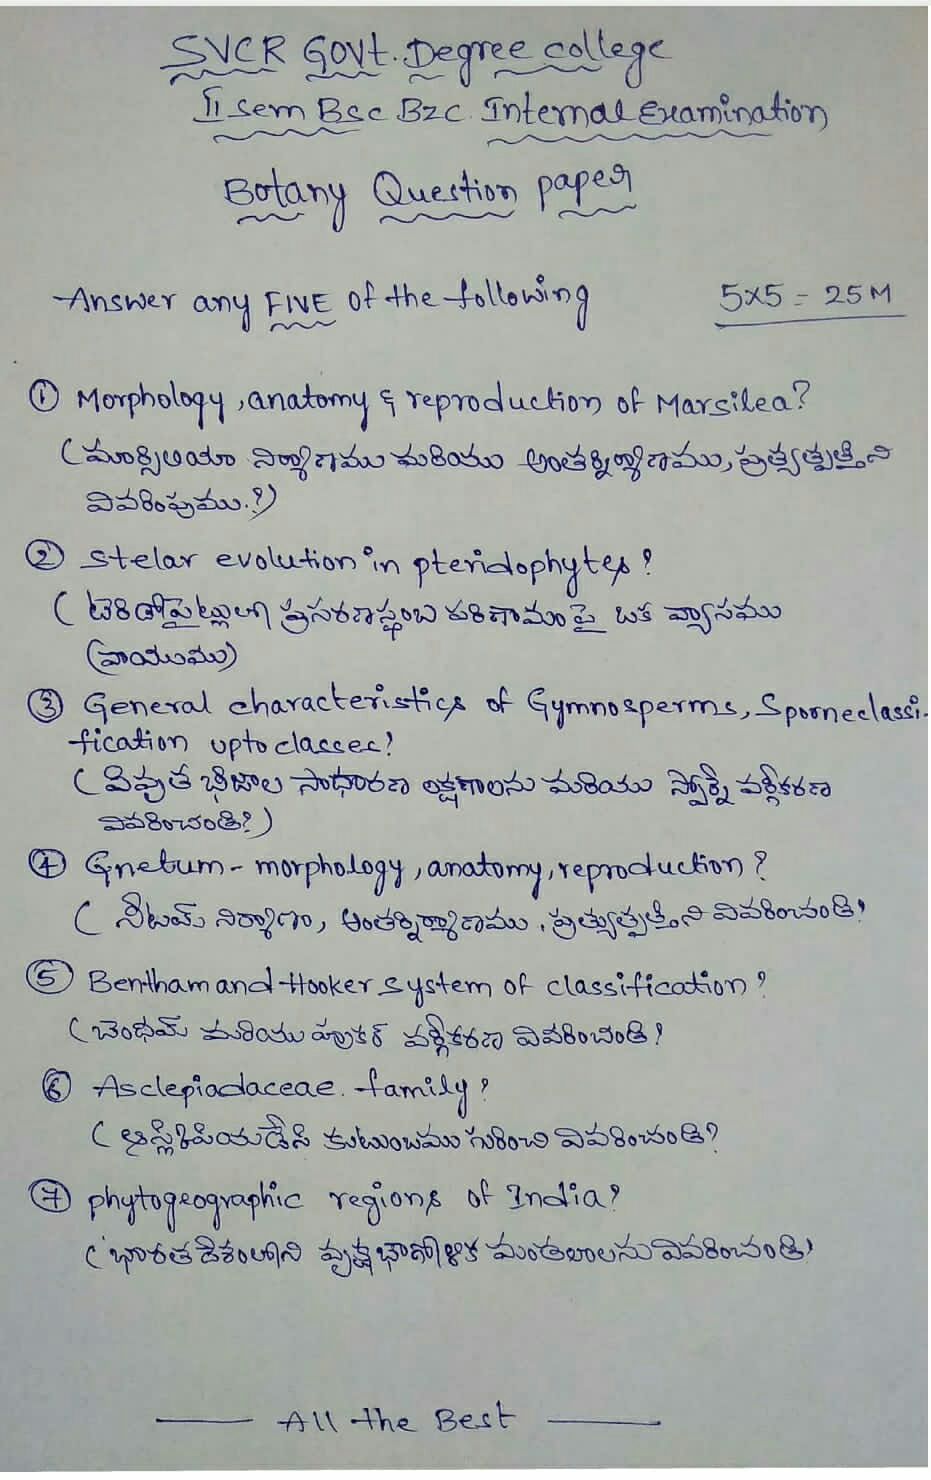 SVCR GOVt. Degree college
II sem Bsc BZC. Internal Examination
Botany Question paper
Answer any FIVE of the following 5x5 = 25M
① Morphology, anatomy & reproduction of Marsilea?
(మార్సిలియా నిర్మాణము మరియు అంతర్నిర్మాణము, ప్రత్యుత్పత్తిని
వివరింపుము.?)
② Stelar evolution in pteridophytes?
(టెరిడోఫైట్లలో ప్రసరణస్థంబ పరిణామం పై ఒక వ్యాసము
(వ్రాయుము)
③ General characteristics of Gymnosperms, Sporneclassi-
fication upto classes?
(వివృత భీజాల సాధారణ లక్షణాలను మరియు స్పోర్నే వర్గీకరణ
వివరించండి?)
④ Gnetum - morphology, anatomy, reproduction?
(నీటమ్ నిర్మాణం, అంతర్నిర్మాణము, ప్రత్యుత్పత్తిని వివరించండి?
⑤ Bentham and Hooker system of classification?
(బెంథమ్ మరియు హుకర్ వర్గీకరణ వివరించండి?
⑥ Asclepiadaceae. family?
(ఆస్క్లిపియడేసి కుటుంబము గురించి వివరించండి?
⑦ phytogeographic regions of India?
(భారత దేశంలోని వృక్ష భౌగోళిక మండలాలను వివరించండి?
All the Best